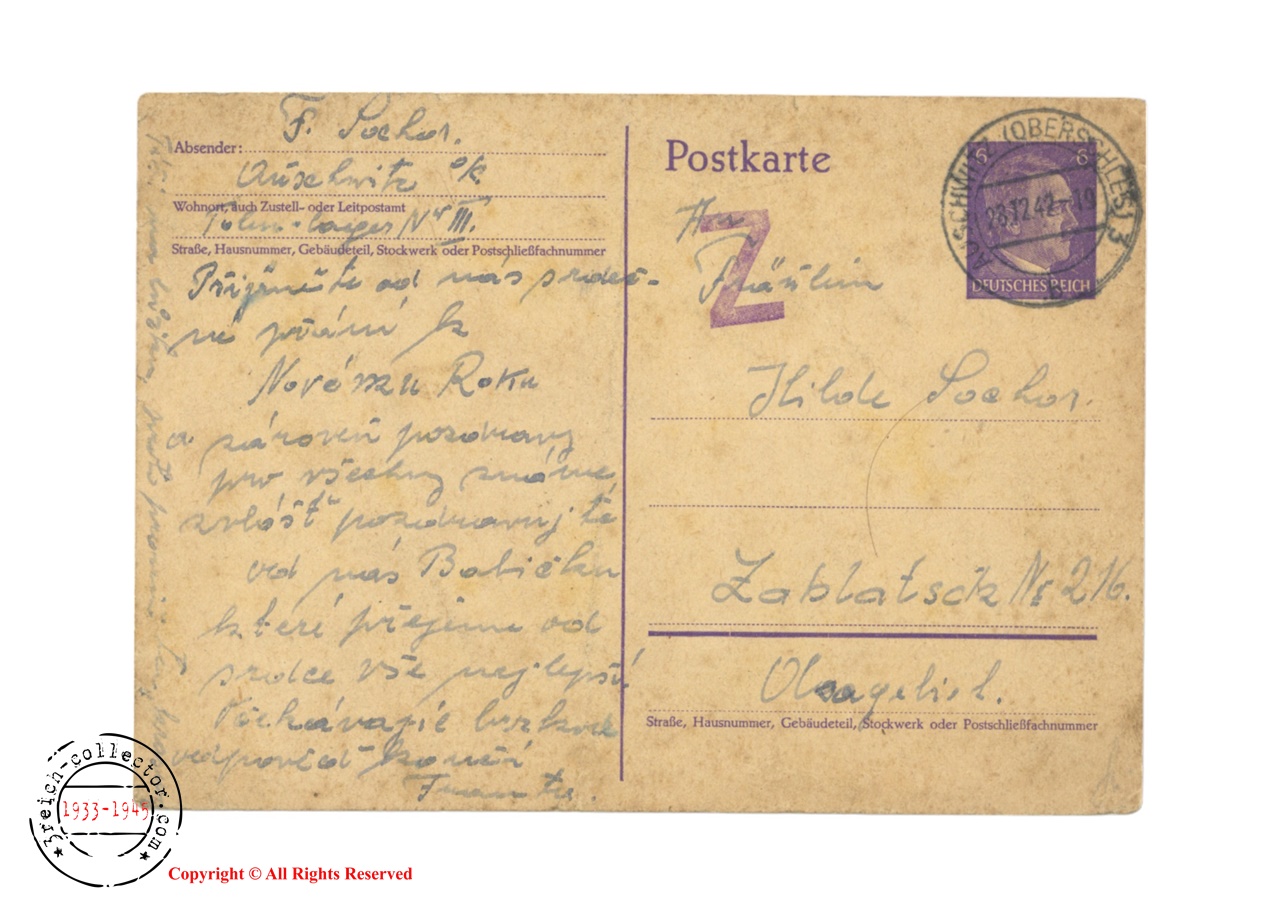 F. Sochor.
Absender:
Auschwitz o/k
Wohnort, auch Zustell- oder Leitpostamt
Polen-lager Nr III.
Straße, Hausnummer, Gebäudeteil, Stockwerk oder Postschließfachnummer
Přijměte od nás srdeč-
né přání k
Novému Roku
a zároveň pozdravy
pro všechny známe
zvlášť pozdravuj te
od nás Babičku
které přejeme od
srdce vše nejlepší
Očekávajíc brzkou
odpověď končí
Postkarte
An
Fräulein
Z
Hilde Sochor.
Zablatsch Nr 216.
Olsagebiet.
Straße, Hausnummer, Gebäudeteil, Stockwerk oder Postschließfachnummer
AUSCHWITZ (OBERSCHLES) 3
28.12.42-19
b
6 6
DEUTSCHES REICH
3reich-collector.com
1933-1945
Copyright © All Rights Reserved